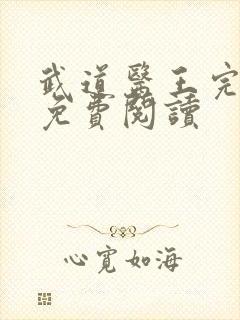 武道醫王完
免費閱讀
心寬如海